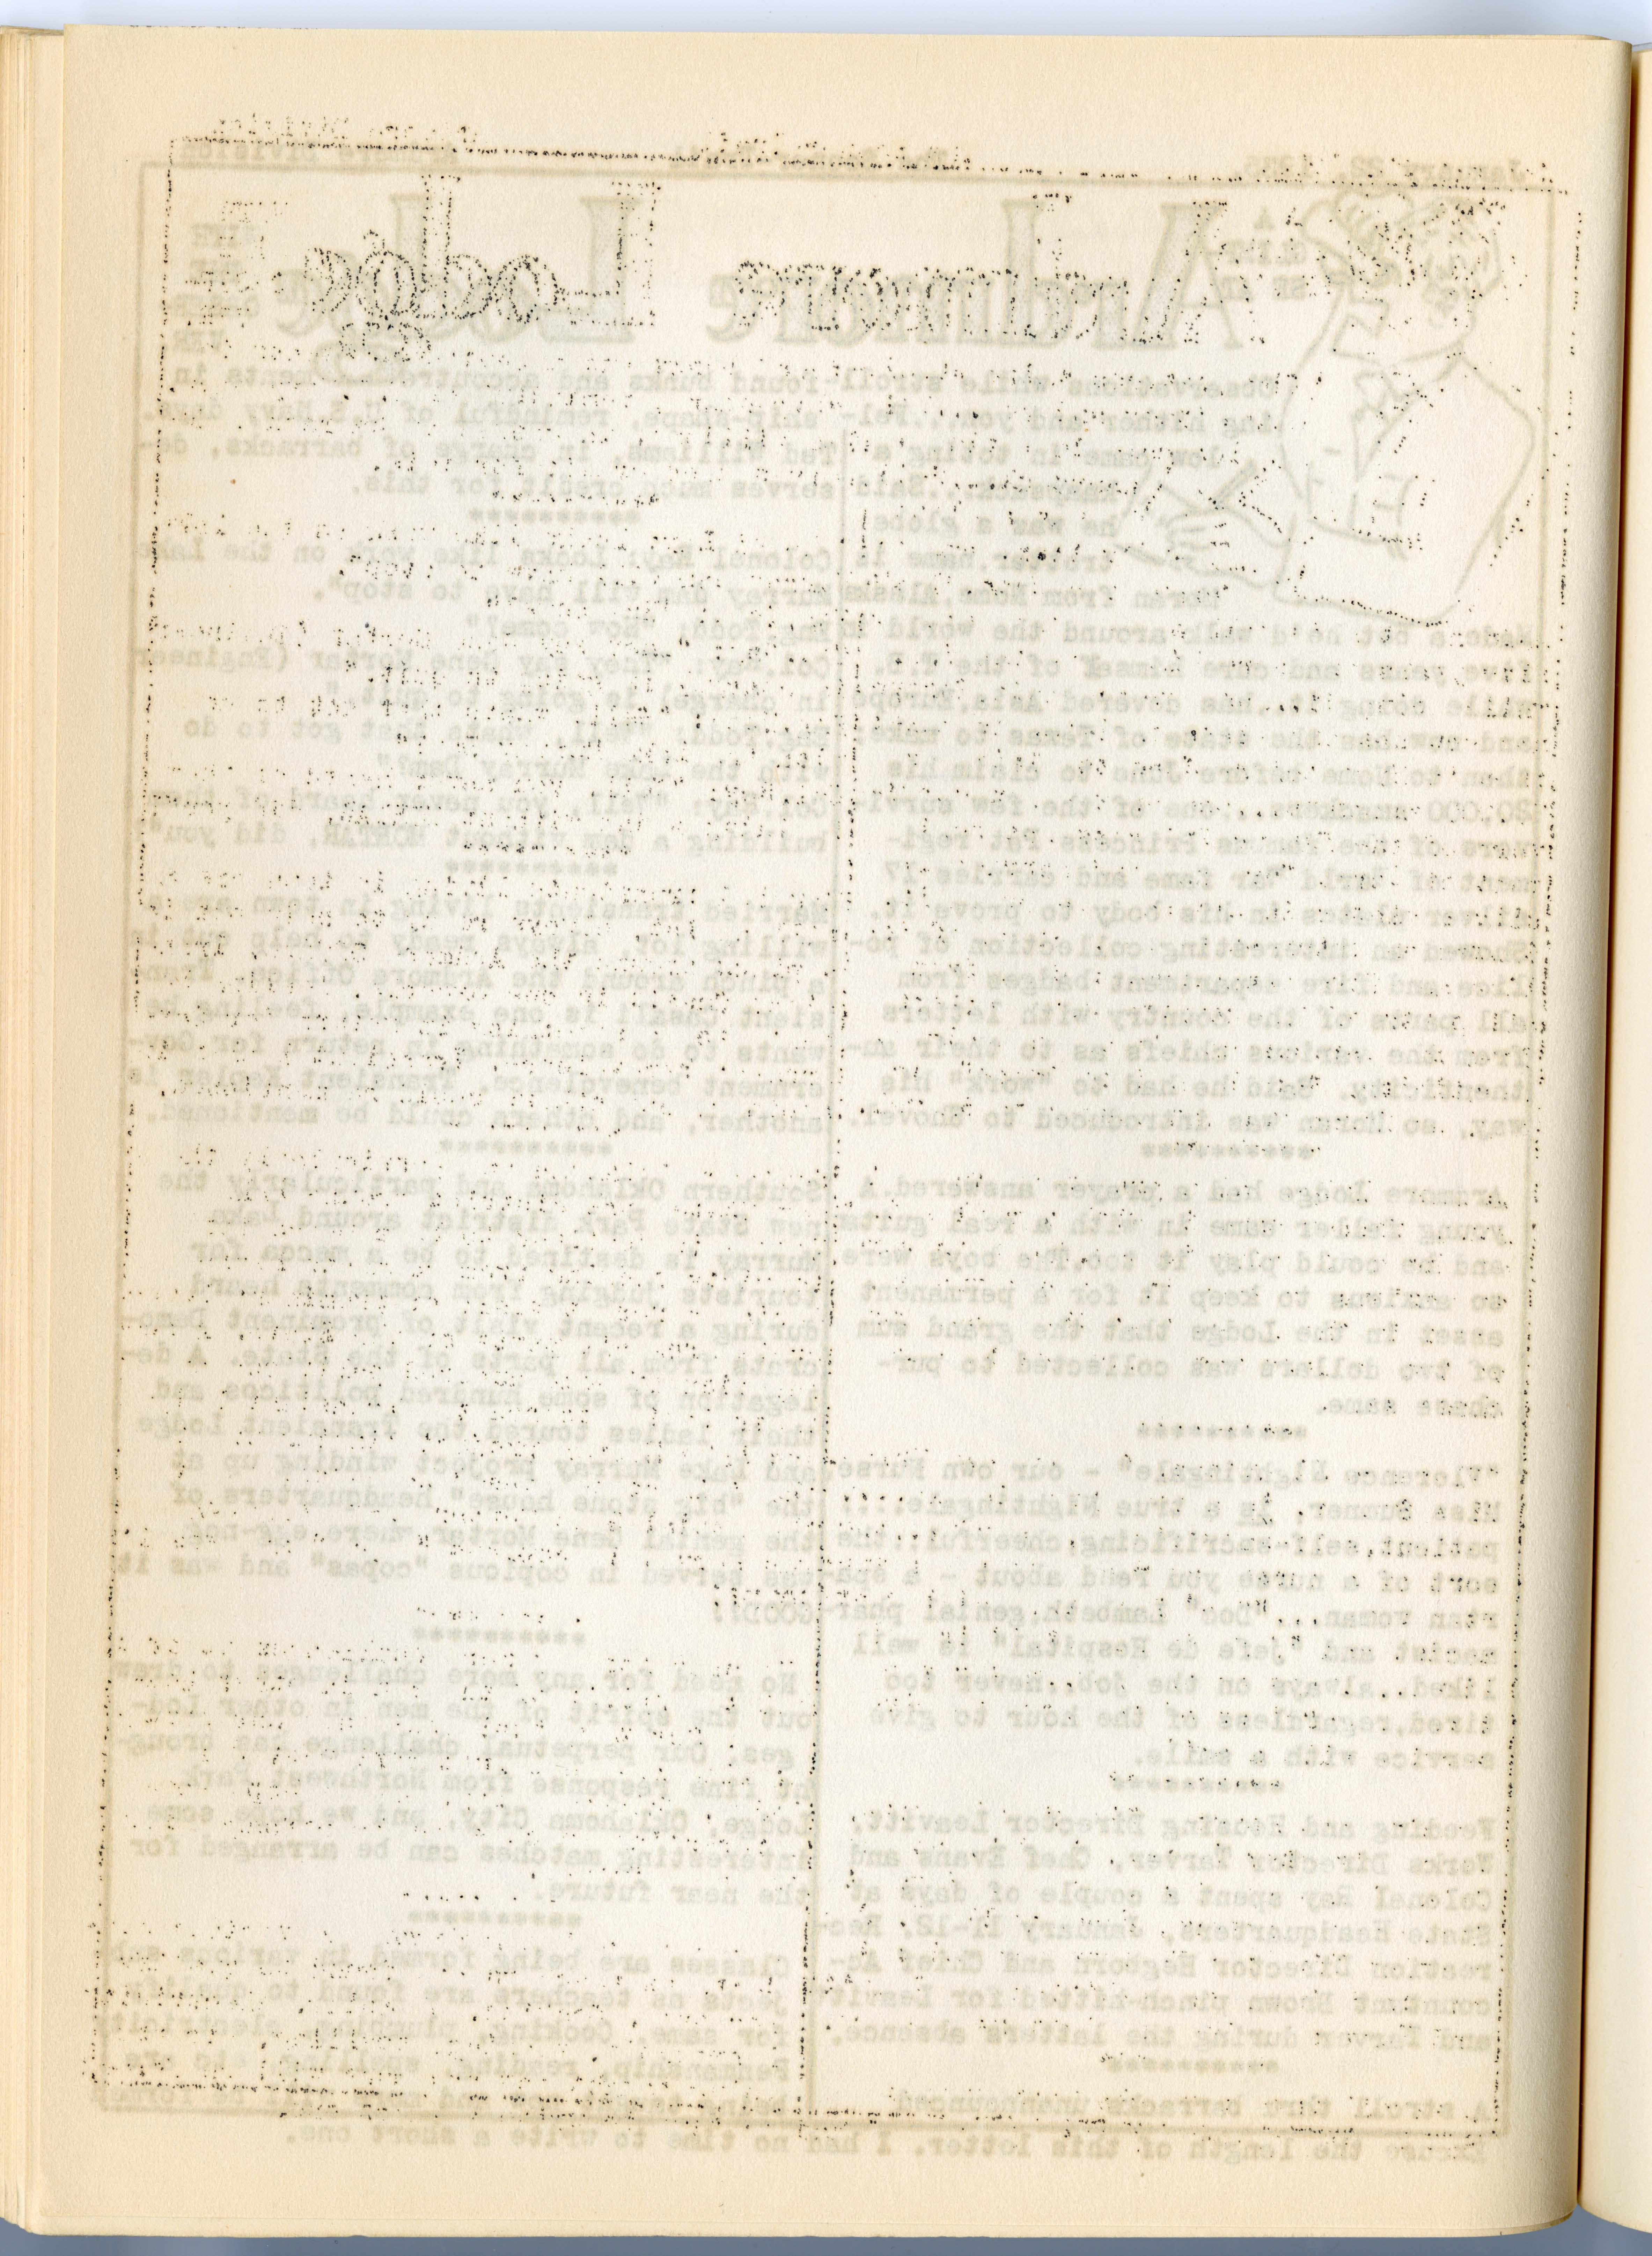 January 22,
Ardmore Lodge
Observations while stroll-
ing hither and yon...Fel-
low came in toting a
Said
he was a globe
trotter. Name is
Moran from Nome, Alaska
he'd walk around the world in
five years and cure himself of the T.B.
while doing it..has covered Asia, Europe
and now has the state of Texas to make
then to Nome before June to claim his
20,000 smackers...one of the few survi-
vors of the famous Princess Pat Regi-
ment of World War fame and carries 17
silver plates in his body to prove it.
Showed an interesting collection of po-
lice and fire department badges from
all parts of the country with letters
from the various chiefs as to their au-
thenticity. Said he had to "work" his
way, so Moran was introduced to shovel.
***********
Ardmore Lodge had a prayer answered. A
young feller came in with a real guitar
and he could play it too. The boys were
so anxious to keep it for a permanent
asset in the Lodge that the grand sum
of two dollars was collected to pur-
chase same.
***********
"Florence Nightingale" - our own Nurse,
Miss Sumner, is a true Nightingale...
patient, self-sacrificing, cheerful; the
sort of a nurse you read about - a spa-
rtan woman..."Doc" Lambeth, genial phar-
macist and "jefe de Hospital" is well
liked..always on the job, never too
tired, regardless of the hour to give
service with a smile.
***********
Feeding and Housing Director Leavitt,
Works Director Tarver, Chef Evans and
Colonel Hay spent a couple of days at
State Headquarters, January 11-12. Rec-
reation Director Hegborn and Chief Ac-
countant Brown pinch-hitted for Leavitt
and Tarver during the latters absence.
***********
A stroll thru barracks unannounced
found bunks and accoutrements in
ship shape, remindful of U.S. Navy days.
Ted Williams, in charge of barracks, de-
serves much credit for this.
***********
Colonel Hay: Looks like work on the Lake
Murray dam will have to stop".
"How come?"
Col. Hay: They say Gene Mortar (Engineer
in charge) is going to
"Well, whats that got to do
with the Lake Murray Dam?"
Col. Hay: "Well, you never heard of them
building a dam without MORTAR, did you"
***********
Married transients living in town are
willing to, always ready to help out in
a pinch around the Ardmore Office. Tran-
sient is one example, feeling he
wants to do something in return for Gov-
ernment benevolence. Transient is
another, and others could be mentioned.
***********
Southern Oklahoma and particularly the
new State Park district around Lake
Murray is destined to be a mecca for
tourists judging from comments heard
during a recent visit of prominent Demo-
crats from all parts of the State. A de-
legation of some hundred politicos and
their ladies toured the Transient Lodge
and Lake Murray project winding up at
the "big stone house" headquarters of
the genial Gene Mortar where egg-nog
was served in copious "copas" and was it
GOOD!!
***********
No need for any more challenges to
out the spirit of the men in other Lod-
ges. Our perpetual challenge has broug-
ht fine response from Northwest Park
Lodge, Oklahoma City, and we hope some
interesting matches can be arranged for
the near future.
***********
Classes are being formed in various sub-
jects as teachers are found to qualify
for same. Cooking, plumbing, electricity,
Penmanship, reading, spelling, etc are
Excuse the length of this letter. I had no time to write a short one.